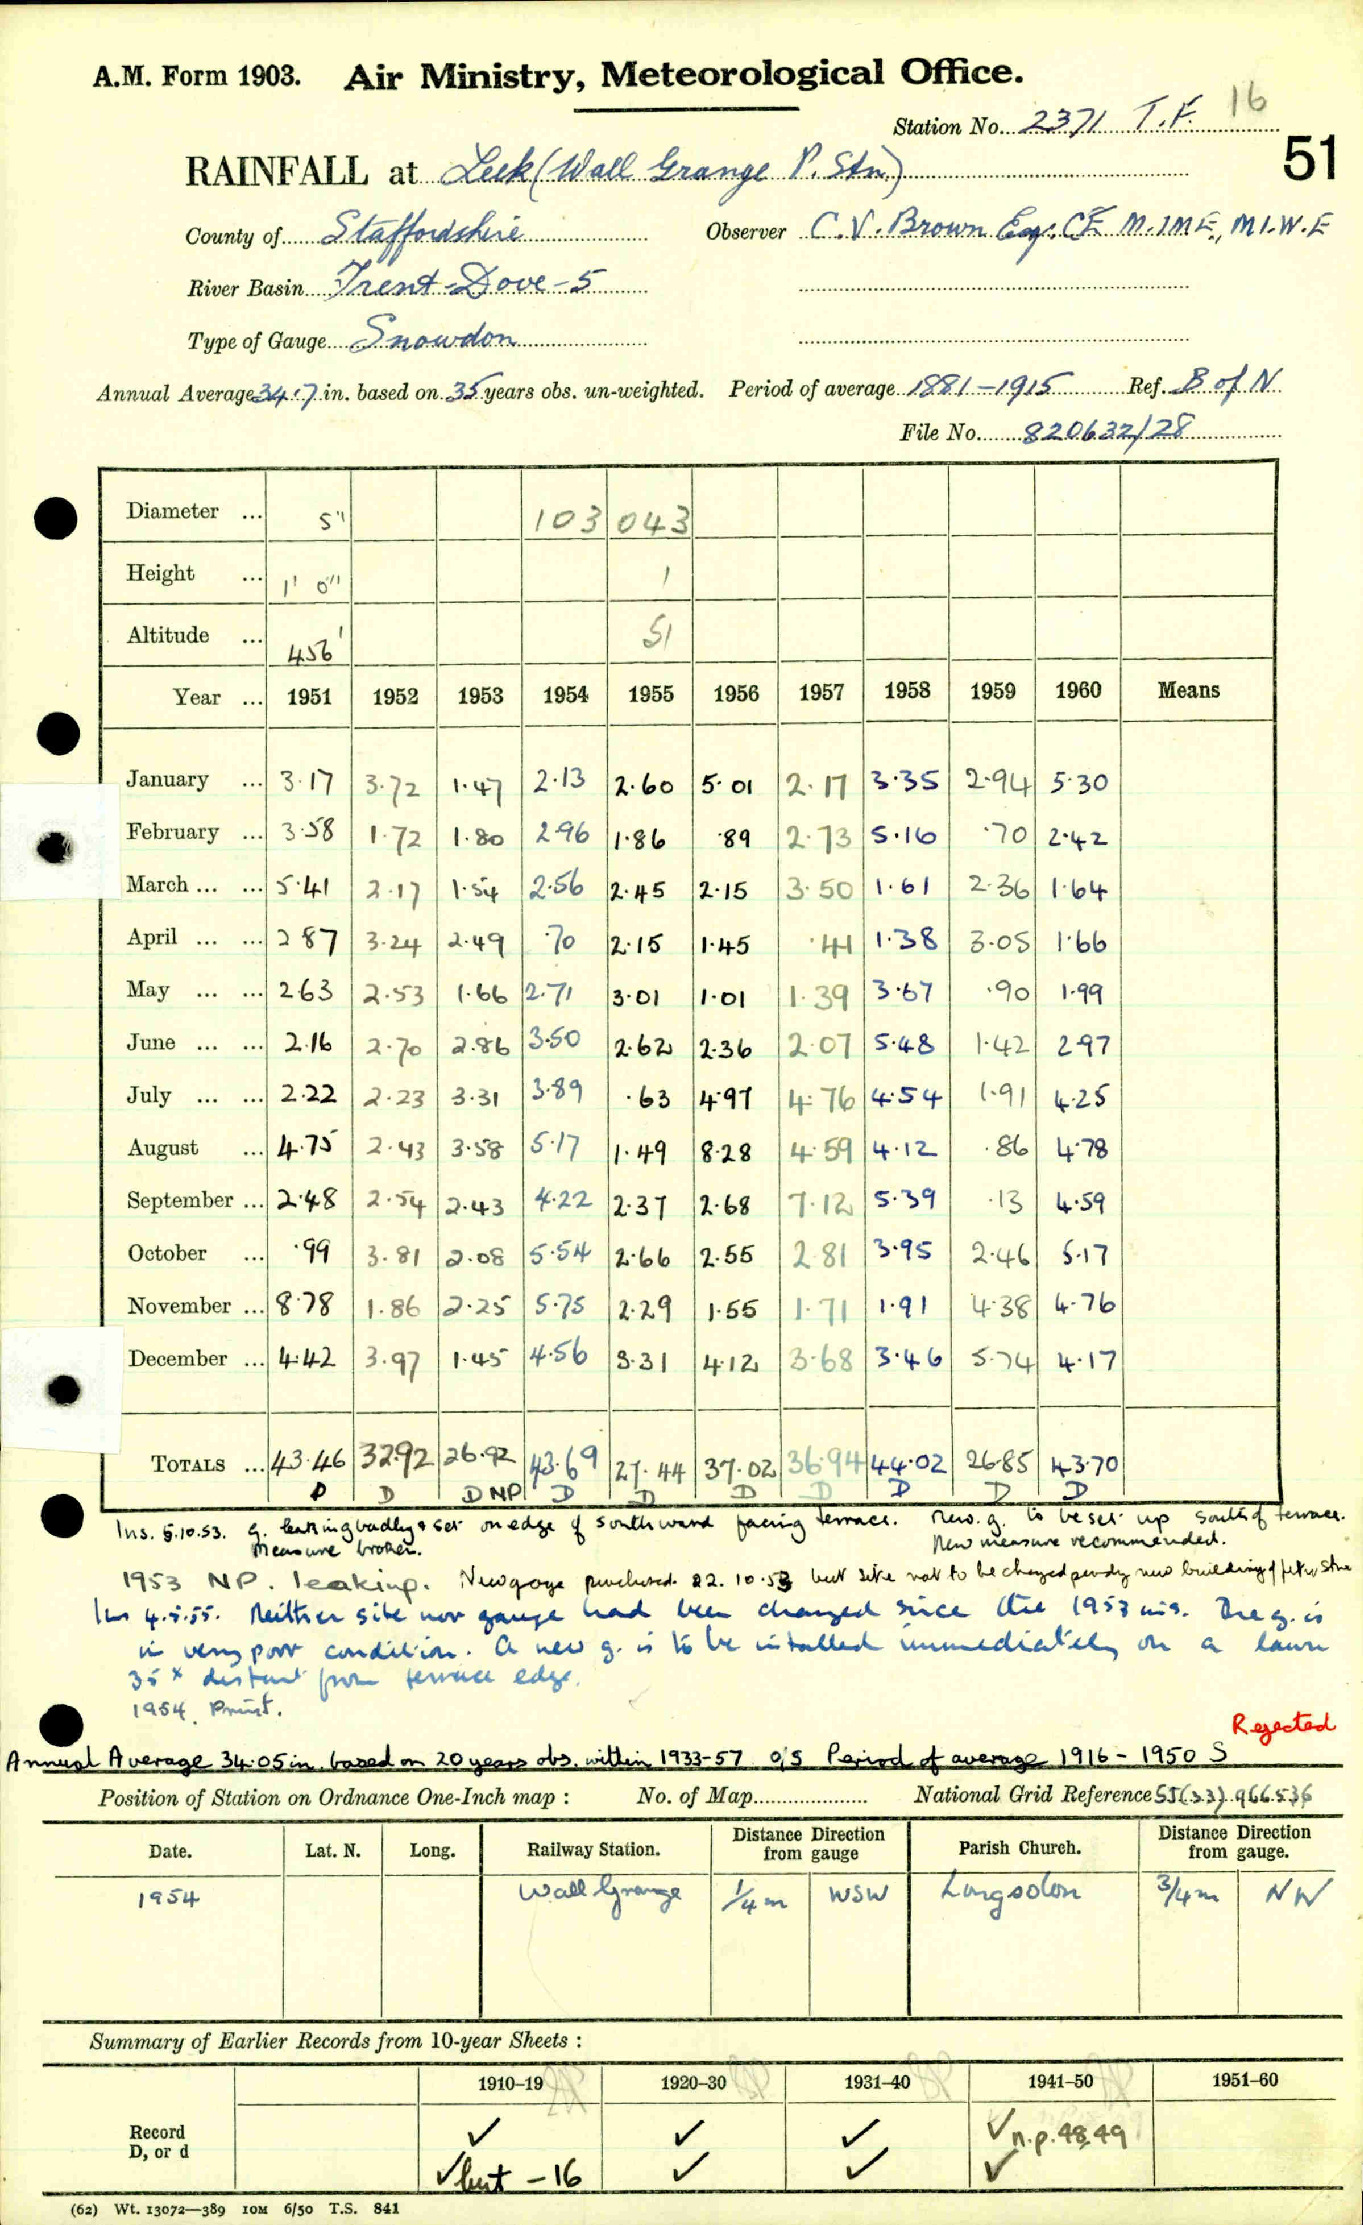 A.M. Form 1903. Air Ministry, Meteorological Office.
16
Station No. 2371 T.F.
51
RAINFALL at Leek (Wall Grange P. Stn)
County of Staffordshire Observer C.V. Brown Esq. CE M.I.M.E., M.I.W.E
River Basin Trent-Dove-5
Type of Gauge Snowdon
Annual Average 34.7 in. based on 35 years obs. un-weighted. Period of average 1881-1915 Ref. B of N
File No. 820632/28
Diameter ... 5" 103 043
Height ... 1' 0" 1
Altitude ... 456' 51
Year ... 1951 1952 1953 1954 1955 1956 1957 1958 1959 1960 Means
January ... 3.17 3.72 1.47 2.13 2.60 5.01 2.17 3.35 2.94 5.30
February ... 3.58 1.72 1.80 2.96 1.86 .89 2.73 5.16 .70 2.42
March ... ... 5.41 2.17 1.54 2.56 2.45 2.15 3.50 1.61 2.36 1.64
April ... ... 2.87 3.24 2.49 .70 2.15 1.45 .41 1.38 3.05 1.66
May ... ... 2.63 2.53 1.66 2.71 3.01 1.01 1.39 3.67 .90 1.99
June ... ... 2.16 2.70 2.86 3.50 2.62 2.36 2.07 5.48 1.42 2.97
July ... ... 2.22 2.23 3.31 3.89 .63 4.97 4.76 4.54 1.91 4.25
August ... 4.75 2.43 3.58 5.17 1.49 8.28 4.59 4.12 .86 4.78
September ... 2.48 2.54 2.43 4.22 2.37 2.68 7.12 5.39 .13 4.59
October ... .99 3.81 2.08 5.54 2.66 2.55 2.81 3.95 2.46 5.17
November ... 8.78 1.86 2.25 5.75 2.29 1.55 1.71 1.91 4.38 4.76
December ... 4.42 3.97 1.45 4.56 3.31 4.12 3.68 3.46 5.74 4.17
TOTALS ... 43.46 32.92 26.92 43.69 27.44 37.02 36.94 44.02 26.85 43.70
D D D NP D D D D D D D
Ins. 5.10.53. g. leaking badly & set on edge of southward facing terrace. New g. to be set up south of terrace.
Measure broken. New measure recommended.
1953 NP. leaking. New gauge purchased 22.10.53 but site not to be changed pendg new building of
Ins 4.5.55. Neither site nor gauge had been changed since the 1953 ins. The g. is
in very poor condition. A new g. is to be installed immediately on a lawn
35 x distant from terrace edge.
1954. Print.
Rejected
Annual Average 34.05 in. based on 20 years obs. within 1933-57 o/s Period of average 1916-1950 S
Position of Station on Ordnance One-Inch map : No. of Map National Grid Reference SJ(33) 966536
Date. Lat. N. Long. Railway Station. Distance Direction from gauge Parish Church. Distance Direction from gauge.
1954 Wall Grange 1/4 m WSW Longsdon 3/4 m NW
Summary of Earlier Records from 10-year Sheets :
1910–19 1920–30 1931–40 1941–50 1951–60
Record ✓ ✓ ✓ ✓ n.p. 48,49
D, or d ✓ but -16 ✓ ✓ ✓
(62) Wt. 13072—389 10M 6/50 T.S. 841